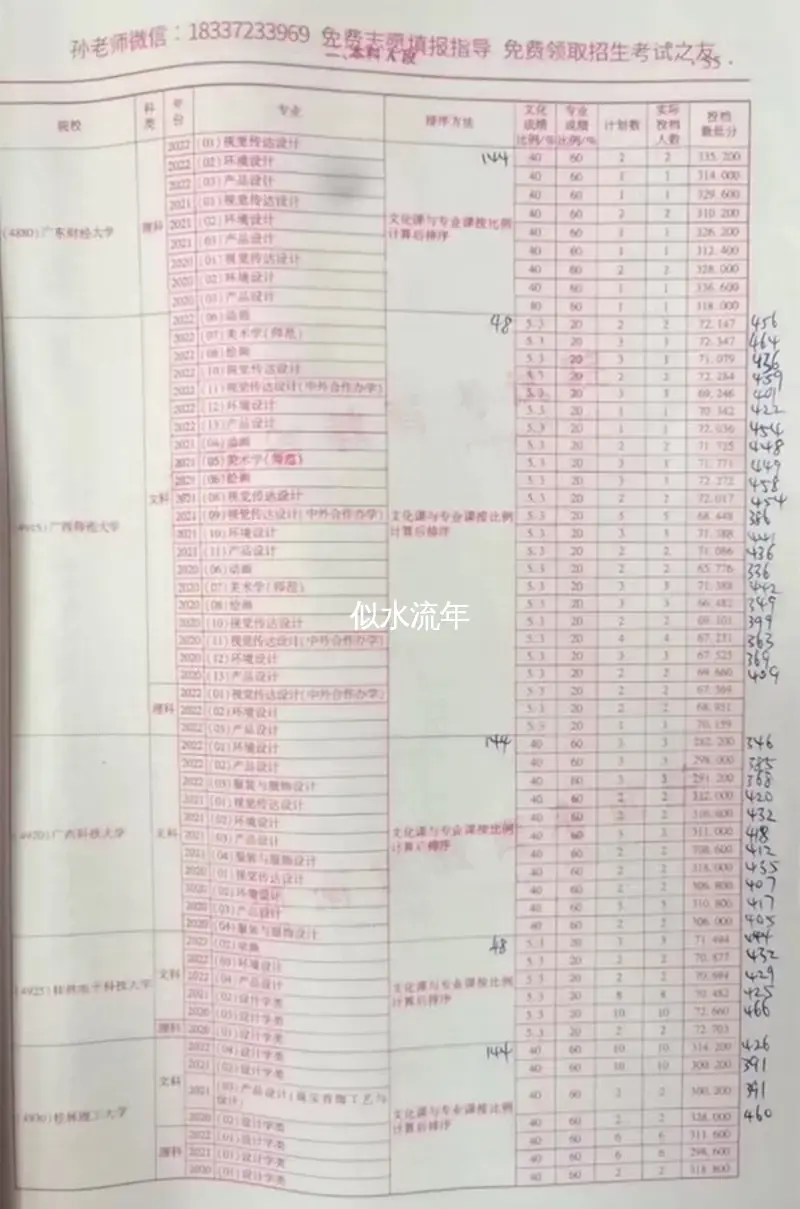 孙老师微信：18337233969 免费志愿填报指导 免费领取招生考试之友
一、本科A段 ·55·
院校 科类 年份 专业 排序方法 文化成绩比例/% 专业成绩比例/% 计划数 实际投档人数 投档最低分
(4880)广东财经大学 理科 文化课与专业课按比例计算后排序 144
2022 (01)视觉传达设计 40 60 2 2 335.200
2022 (02)环境设计 40 60 1 1 314.000
2022 (03)产品设计 40 60 1 1 329.600
2021 (01)视觉传达设计 40 60 2 2 310.200
2021 (02)环境设计 40 60 1 1 326.200
2021 (03)产品设计 40 60 1 1 312.400
2020 (01)视觉传达设计 40 60 2 2 328.000
2020 (02)环境设计 40 60 1 1 336.600
2020 (03)产品设计 40 60 1 1 318.000
(4915)广西师范大学 文科 文化课与专业课按比例计算后排序 48
2022 (06)动画 5.3 20 2 2 72.147 456
2022 (07)美术学(师范) 5.3 20 3 3 72.347 464
2022 (08)绘画 5.3 20 3 3 71.079 436
2022 (10)视觉传达设计 5.3 20 2 2 459
2022 (11)视觉传达设计(中外合作办学) 5.3 20 3 3 69.246 401
2022 (12)环境设计 5.3 20 1 1 70.342 422
2022 (13)产品设计 5.3 20 1 1 454
2021 (04)动画 5.3 20 2 2 71.725 448
2021 (05)美术学(师范) 5.3 20 3 3 71.771 449
2021 (06)绘画 5.3 20 3 3 72.272 458
2021 (08)视觉传达设计 5.3 20 2 2 72.017 454
2021 (09)视觉传达设计(中外合作办学) 5.3 20 5 5 68.448 386
2021 (10)环境设计 5.3 20 3 3 71.388 441
2021 (11)产品设计 5.3 20 2 2 71.086 436
2020 (06)动画 5.3 20 2 2 65.776 336
2020 (07)美术学(师范) 5.3 20 3 3 71.388 442
2020 (08)绘画 5.3 20 3 3 66.482 349
2020 (10)视觉传达设计 5.3 20 2 2 69.101 399
2020 (11)视觉传达设计(中外合作办学) 5.3 20 4 4 67.231 363
2020 (12)环境设计 5.3 20 3 3 67.525 369
2020 (13)产品设计 5.3 20 2 2 69.660 409
似水流年
理科
2022 (01)视觉传达设计(中外合作办学) 5.3 20 2 2
2022 (02)环境设计 5.3 20 2 2
2022 (03)产品设计 5.3 20 1 1 70.159
(4920)广西科技大学 文科 文化课与专业课按比例计算后排序 144
2022 (01)环境设计 40 60 3 3 282.200 346
2022 (02)产品设计 40 60 3 3 298.000 385
2022 (03)服装与服饰设计 40 60 3 3 291.200 368
2021 (01)视觉传达设计 40 60 2 2 312.000 420
2021 (02)环境设计 40 60 2 2 432
2021 (03)产品设计 40 60 3 3 311.000 418
2021 (04)服装与服饰设计 40 60 2 2 412
2020 (01)视觉传达设计 40 60 2 2 318.000 435
2020 (02)环境设计 40 60 2 2 306.800 407
2020 (03)产品设计 40 60 310.800 417
2020 (04)服装与服饰设计 40 60 2 2 306.000 405
(4925)桂林电子科技大学 文科 文化课与专业课按比例计算后排序 48
2022 5.3 20 3 3 71.494
2022 (03)环境设计 5.3 20 2 2 70.877 432
2022 (04)产品设计 5.3 20 2 2 429
2021 (02)设计学类 5.3 20 8 8 70.482 425
2020 (03)设计学类 5.3 20 10 10 72.660 466
理科 2020 (01)设计学类 5.3 20 2 2 72.703
(4930)桂林理工大学 文科 文化课与专业课按比例计算后排序 144
2022 (04)设计学类 40 60 10 10 314.200 426
2021 (02)设计学类 40 60 10 10 300.200 391
2021 (03)产品设计(珠宝首饰工艺与设计) 40 60 2 2 300.200 391
2020 (02)设计学类 40 60 2 2 328.000 460
理科
2022 (01)设计学类 40 60 6 6 311.600
2021 (01)设计学类 40 60 6 6 298.600
2020 (01)设计学类 40 60 2 2 318.800